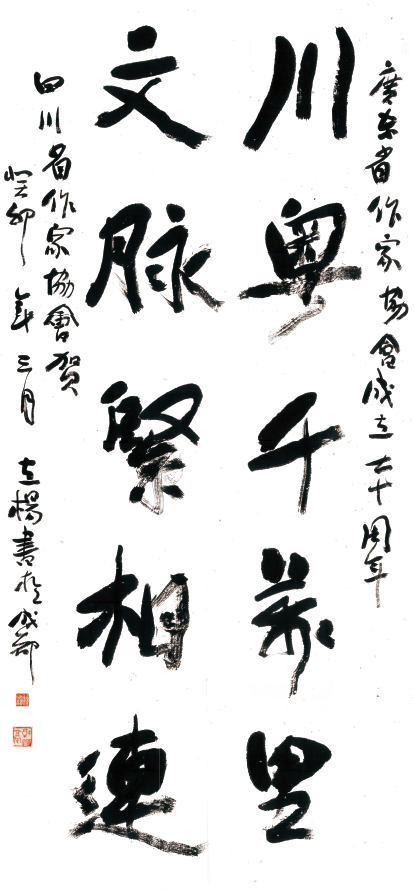 廣東省作家協會成立七十周年
川粤千萬里
文脉緊相連
四川省作家協會賀
癸卯年三月
立楊書於成都